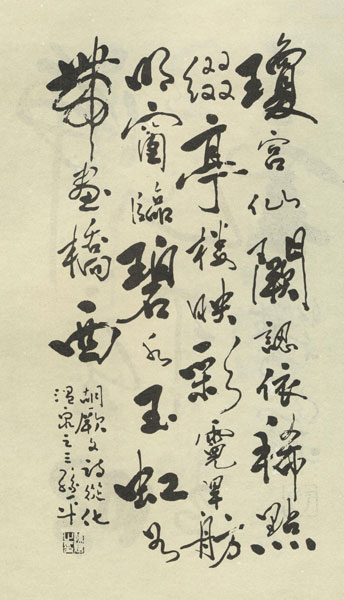 瓊宮仙闕認依稀點
綴亭楼映彩霓舫
明窗臨碧水玉虹如
帶畫橋西
胡厥文詩從化
温泉之三